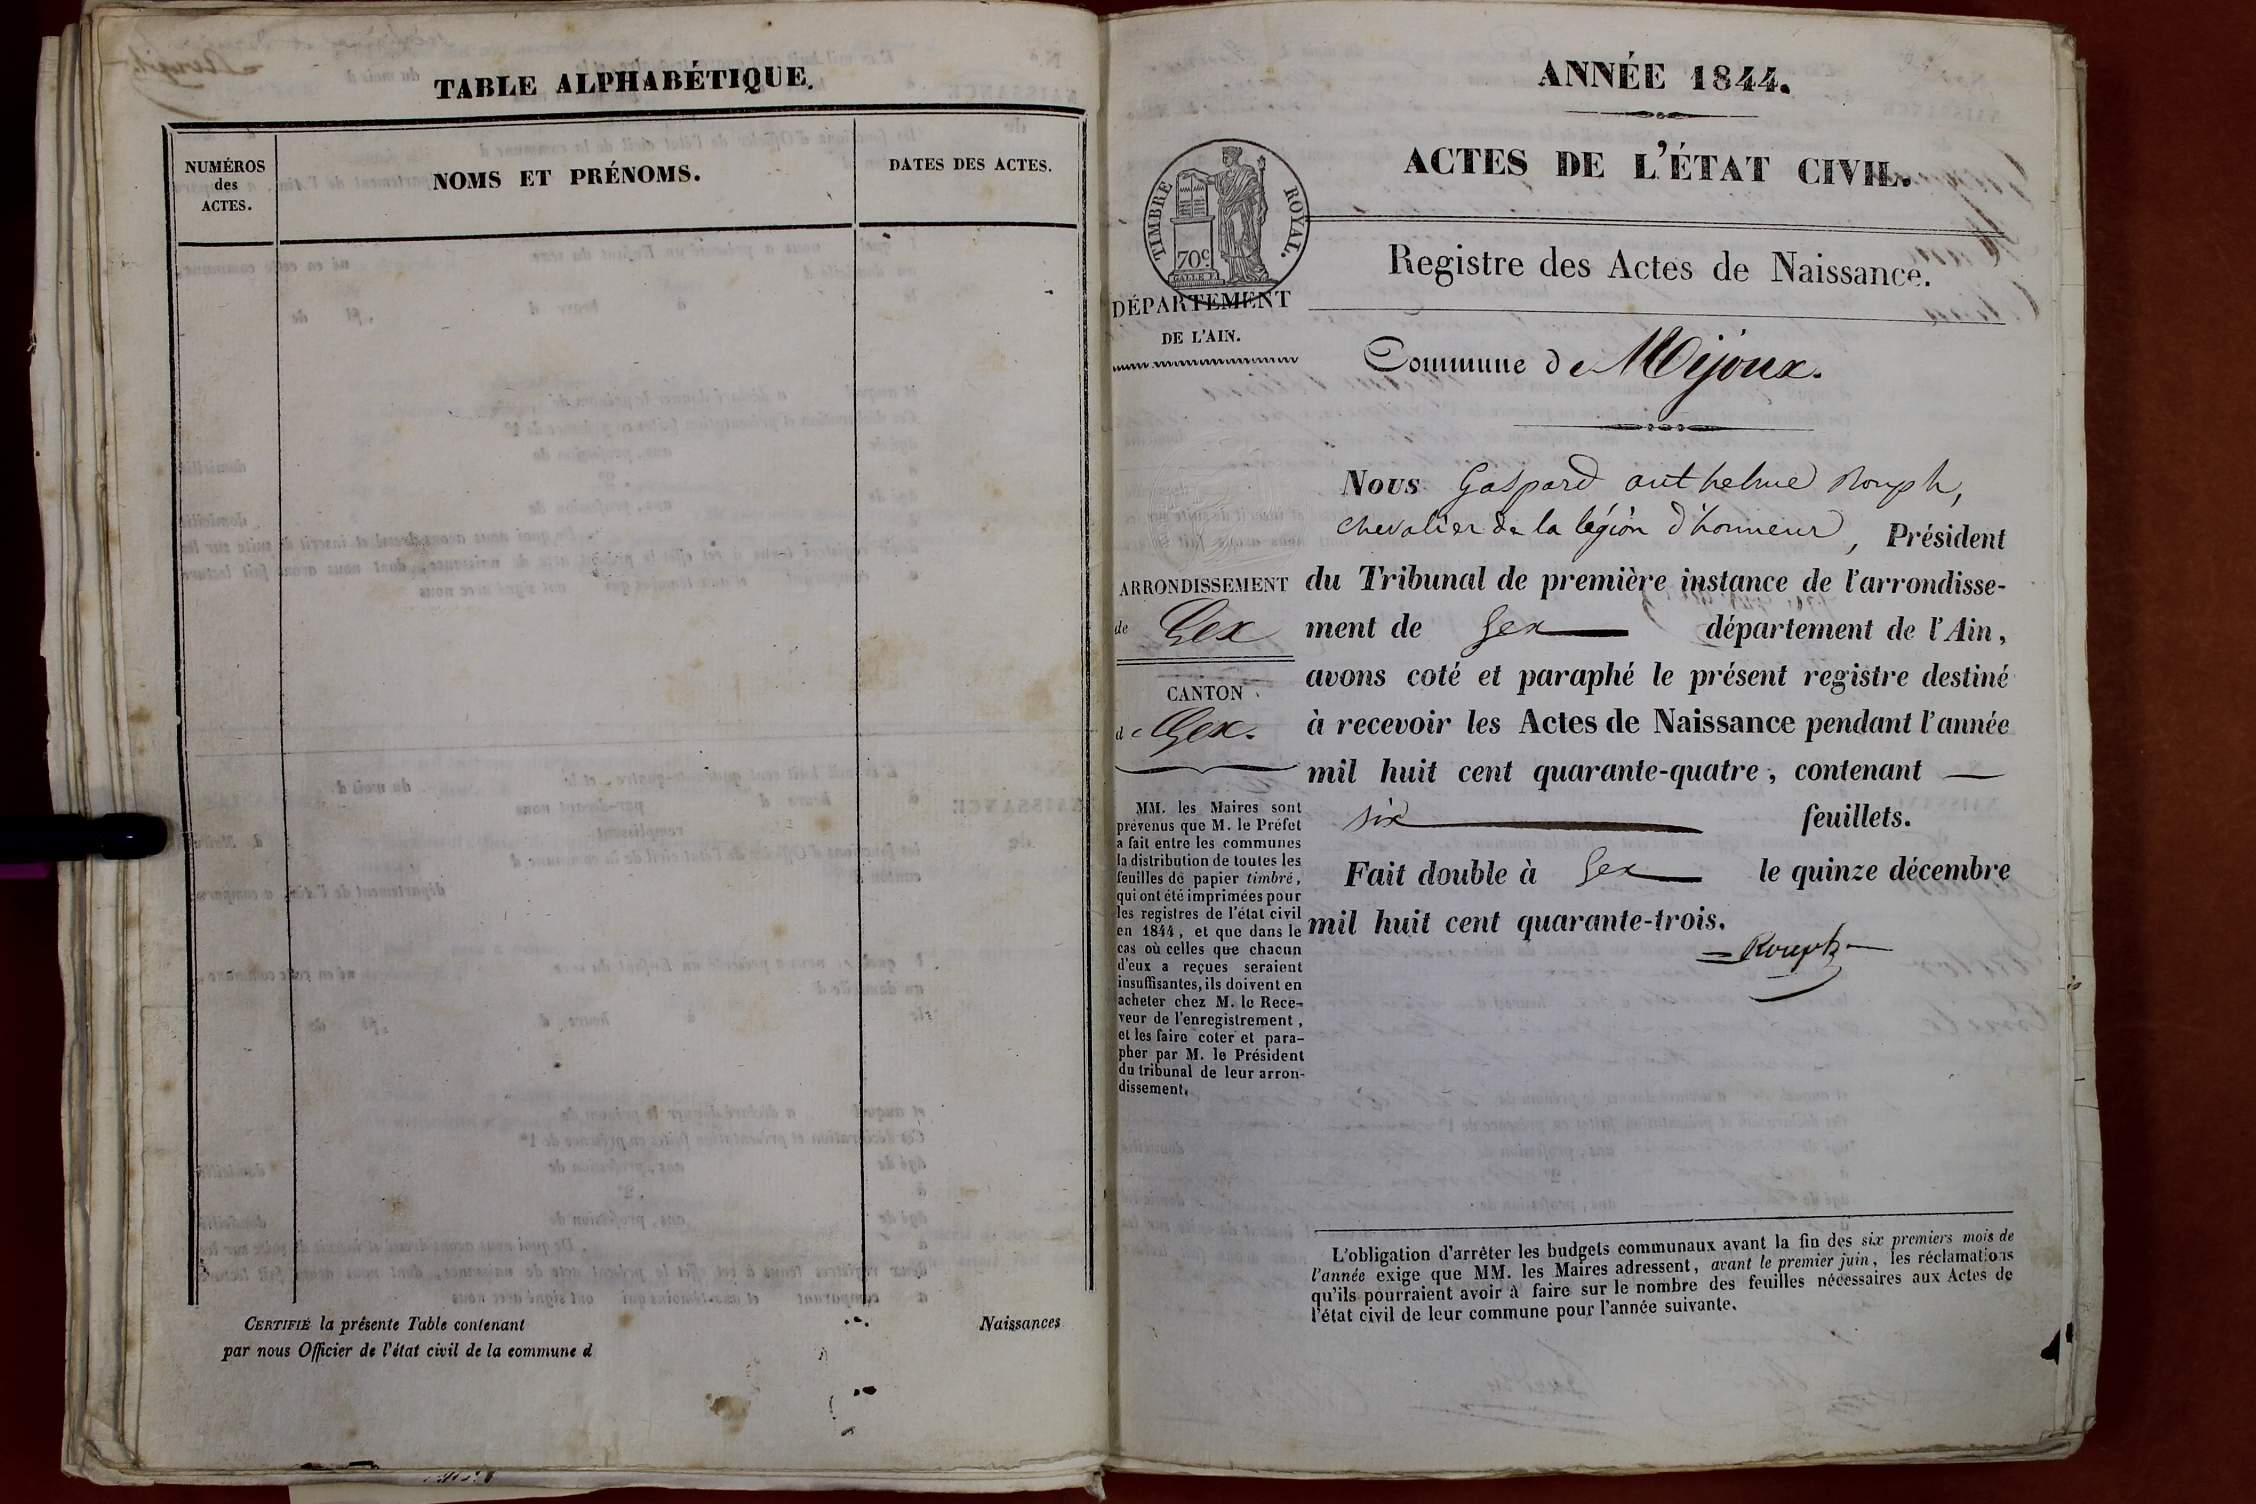 TABLE ALPHABÉTIQUE.
NUMÉROS
des
ACTES.
NOMS ET PRÉNOMS.
DATES DES ACTES.
CERTIFIÉ la présente Table contenant
Naissances
par nous Officier de l'état civil de la commune d
ANNÉE 1844.
ACTES DE L'ÉTAT CIVIL.
TIMBRE ROYAL.
70c.
Registre des Actes de Naissance.
DÉPARTEMENT
DE L'AIN.
Commune de Mijoux.
Nous Gaspard anthelme Rouph,
chevalier de la légion d'honneur, Président
du Tribunal de première instance de l'arrondisse-
ment de Gex département de l'Ain,
avons coté et paraphé le présent registre destiné
à recevoir les Actes de Naissance pendant l'année
mil huit cent quarante-quatre, contenant
six feuillets.
Fait double à Gex le quinze décembre
mil huit cent quarante-trois.
Rouph
ARRONDISSEMENT
de Gex
CANTON
de Gex.
MM. les Maires sont
prévenus que M. le Préfet
a fait entre les communes
la distribution de toutes les
feuilles de papier timbré,
qui ont été imprimées pour
les registres de l'état civil
en 1844, et que dans le
cas où celles que chacun
d'eux a reçues seraient
insuffisantes, ils doivent en
acheter chez M. le Rece-
veur de l'enregistrement,
et les faire coter et para-
pher par M. le Président
du tribunal de leur arron-
dissement.
L'obligation d'arrêter les budgets communaux avant la fin des six premiers mois de
l'année exige que MM. les Maires adressent, avant le premier juin, les réclamations
qu'ils pourraient avoir à faire sur le nombre des feuilles nécessaires aux Actes de
l'état civil de leur commune pour l'année suivante.